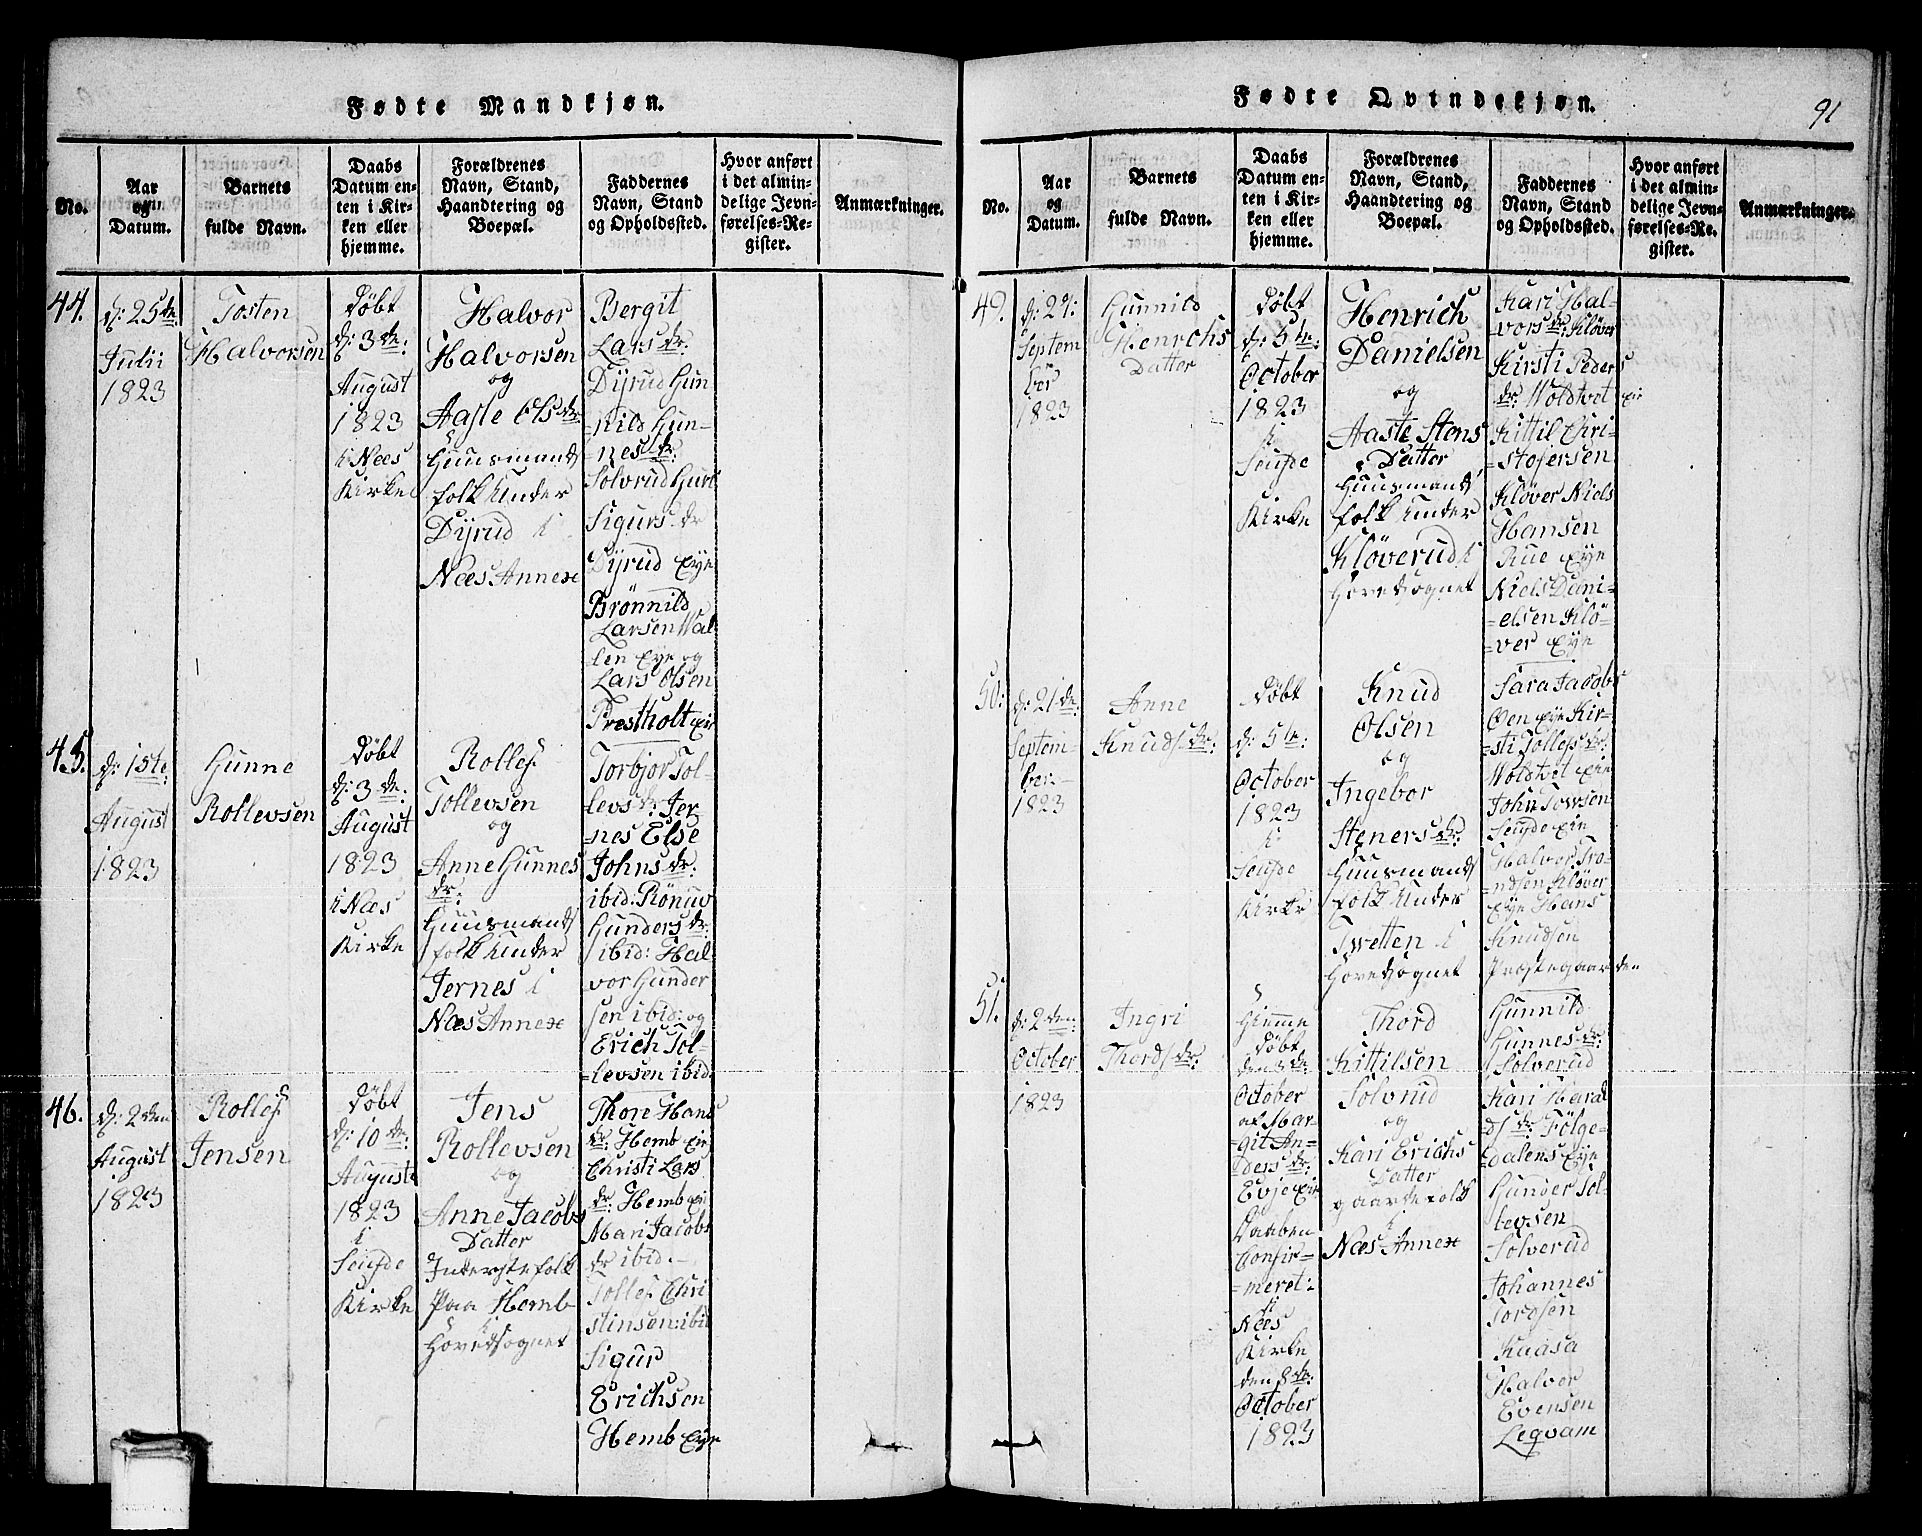 Fødte Mandkjøn.
No.
Aar
og
Datum.
Barnets
fulde Navn.
Daabs
Datum en-
ten i Kir-
ken eller
hjemme.
Forældrenes
Navn, Stand,
Haandtering og
Boepæl.
Faddernes
Navn, Stand
og Opholdssted.
Hvor anført
i det almin-
delige Jevn-
førelses-Re-
gister.
Anmærkninger.
44.
d: 25de
Julii
1823
Tosten
Halvorsen
Døbt
d: 3de:
August
1823
i Nees
Kirke
Halvor
Halvorsen
og
Aaste Ols dr:
Huusmands
folk under
Dyrud i
Næs Annex
Bergit
Lars dr:
Dyrud Gun-
nild Gun-
nes dr:
Solvrud Guri
Sigurs dr
Dyrud Eye
Brønnild
Larsen Wal-
len Eye og
Lars Olsen
Prestholt Eie
45.
d: 1ste:
August
1823
Gunne
Rollevsen
Døbt
d: 3de:
August
1823
i Næs
Kirke
Rollef
Tollevsen
og
Anne Gunnes
dr:
Huusmands
folk under
Jernes i
Næs Annex
Torbjor Tol-
levs dr: Jer
nes Else
Johns dr:
ibid: Rønuv
Gunders dr:
ibid: Hal
vor Gunder
sen ibid: og
Erich Tol-
levsen ibid
46.
d: 2den
August
1823
Rollef
Jensen
Døbt
d: 10de:
August
1823
i
Seufde
Kirke
Jens
Rollevsen
og
Anne Jacobs
Datter
Inderstefolk
Paa Hemb
i
Hovedsognet
Thore Hans
dr: Hemb Eie
Christi Lars
dr: Hemb Eie
Mari Jacobs
dr ibid.
Tollef Chri
stinsen: ibid
Sigur
Erichsen
Hemb Eye
Fødte Qvindekjøn.
91
No.
Aar
og
Datum.
Barnets
fulde Navn.
Daabs
Datum en-
ten i Kir-
ken eller
hjemme.
Forældrenes
Navn, Stand,
Haandtering og
Boepæl.
Faddernes
Navn, Stand
og Opholdssted.
Hvor anført
i det almin-
delige Jevn-
førelses-Re-
gister.
Anmærkninger.
49.
Septem
ber
1823
Gunnild
Henrichs
Datter
Døbt
d: 5te:
October
1823
i
Seufde
Kirke
Henrich
Danielsen
og
Aaste Stens
Datter
Huusmands
folk under
Kløverud i
Hovedsognet
Kari Hal-
vors dr: Kløver
Kirsti Peders
dr: Woldtvet Eie
Kittil Chri-
stofersen
Kløver Niels
Hansen
Rue Eye
Niels Dani-
elsen Klø-
ver Eye
50:
d: 21de:
Septem-
ber
1823
Anne
Knuds dr:
Døbt
d: 5te:
October
1823
i
Seufde
Kirke
Knud
Olsen
og
Ingebor
Steners dr:
Huusmands
folk under
Twetten i
Hovedsognet
Sara Jacobs
Øen Eye Kir-
sti Tollefs dr:
Woldtvet Eie
John Towsen
Seufde Eie
Halvor Tro-
ndsen Kløver
Eye Hans
Knudsen
Præstegaarden
51.
d: 2den:
October
1823
Ingri
Thords dr:
Hiemme
Døbt
den 3de
October
af Mar-
git An-
ders dr:
Evje Eie
Daaben
Confir-
meret:
i
Næs
Kirke
den 8de
October
1823
Thord
Kittilsen
Solvrud
og
Kari Erichs
Datter
gaardefolk
i
Næs Annex
Gunnild
Gunnes dr:
Solverud
Kari Haral
ds dr: Følge-
dalens Eye
Gunder Tol-
levsen
Solverud
Johannes
Tordsen
Kuasa
Halvor
Evensen
Leqvam